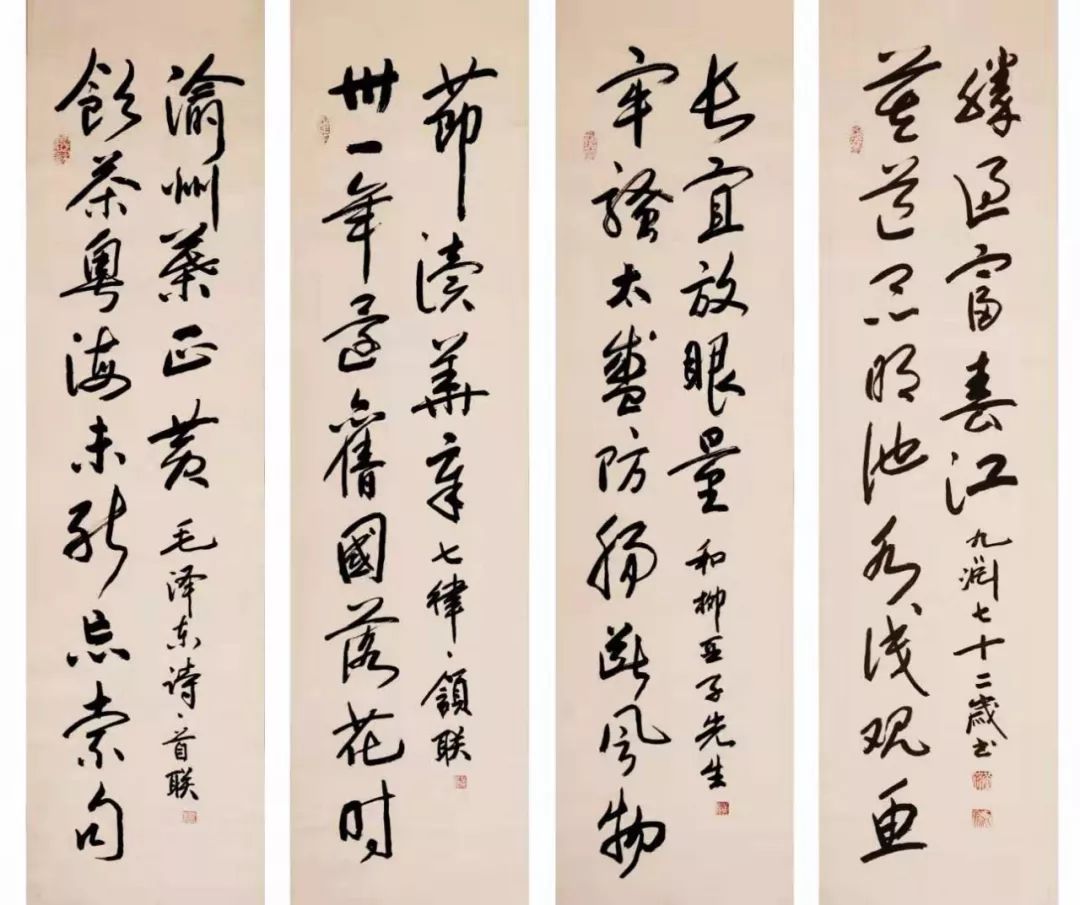 飲茶粤海未能忘索句
渝州葉正黄 毛泽东诗·首联
卅一年還舊國落花时
節读華章 七律·頷联
牢骚太盛防肠断风物
长宜放眼量 和柳亚子先生
莫道昆明池水浅观鱼
胜过富春江 九渊七十二歲书